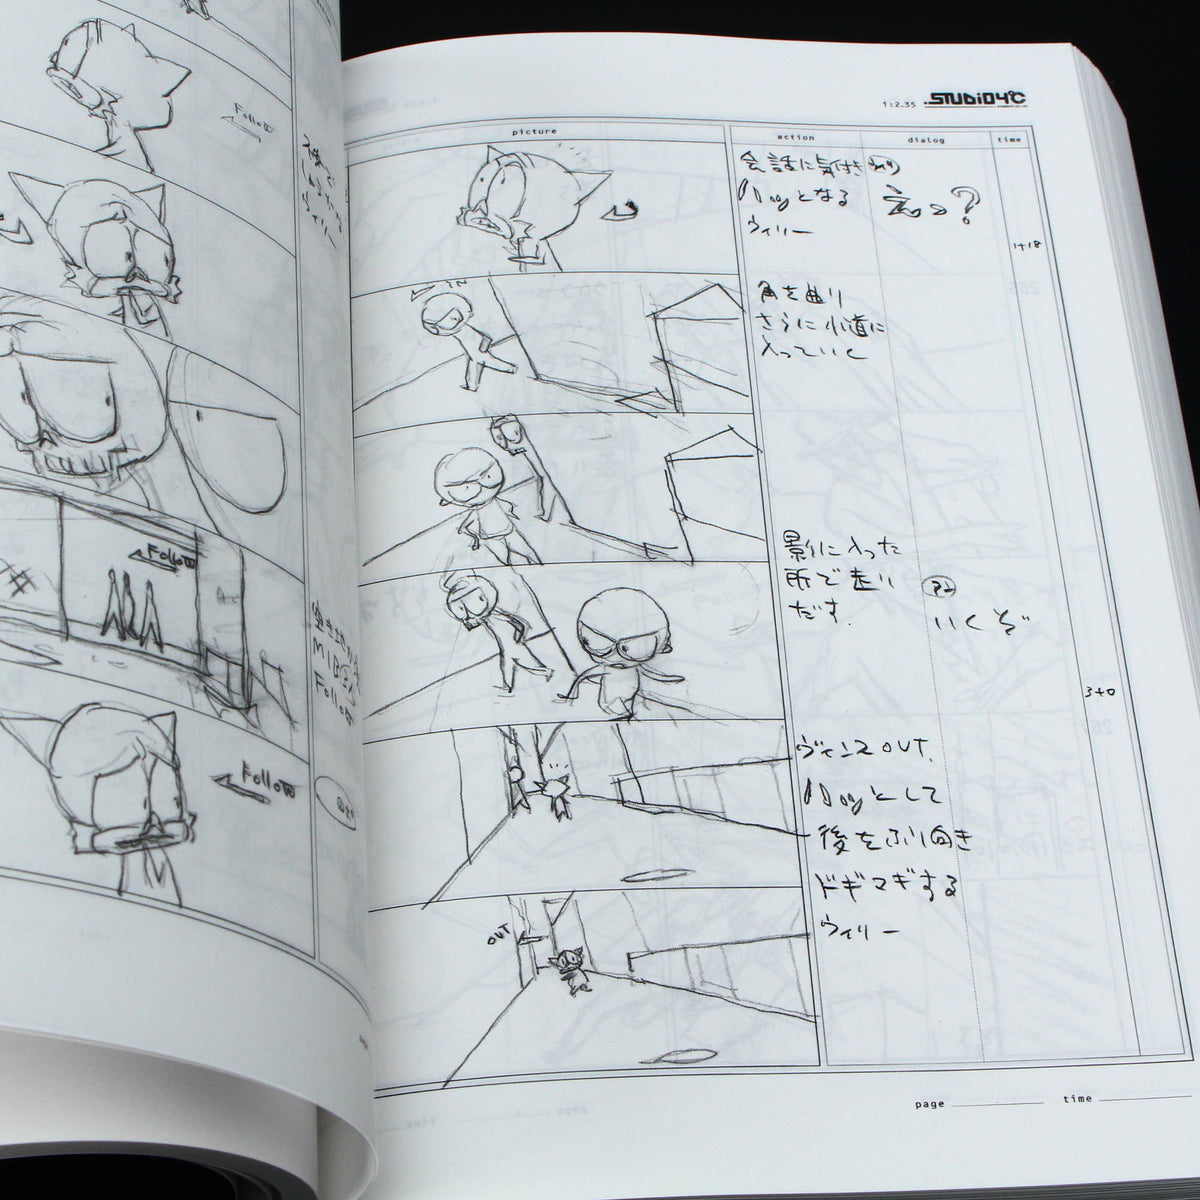 Follow
Follow
MIB
Follow
Follow
1:2.35 STUDIO4℃
picture
action
dialog
time
会話に気付き
ハッとなる
ウィリー
えっ?
1+18
角を曲り
さらに小道に
入っていく
影に入った
所で走り
だす.
いくぞ
3+0
ヴィンスOUT.
ハッとして
後をふり向き
ドギマギする
ウィリー
OUT
page
time